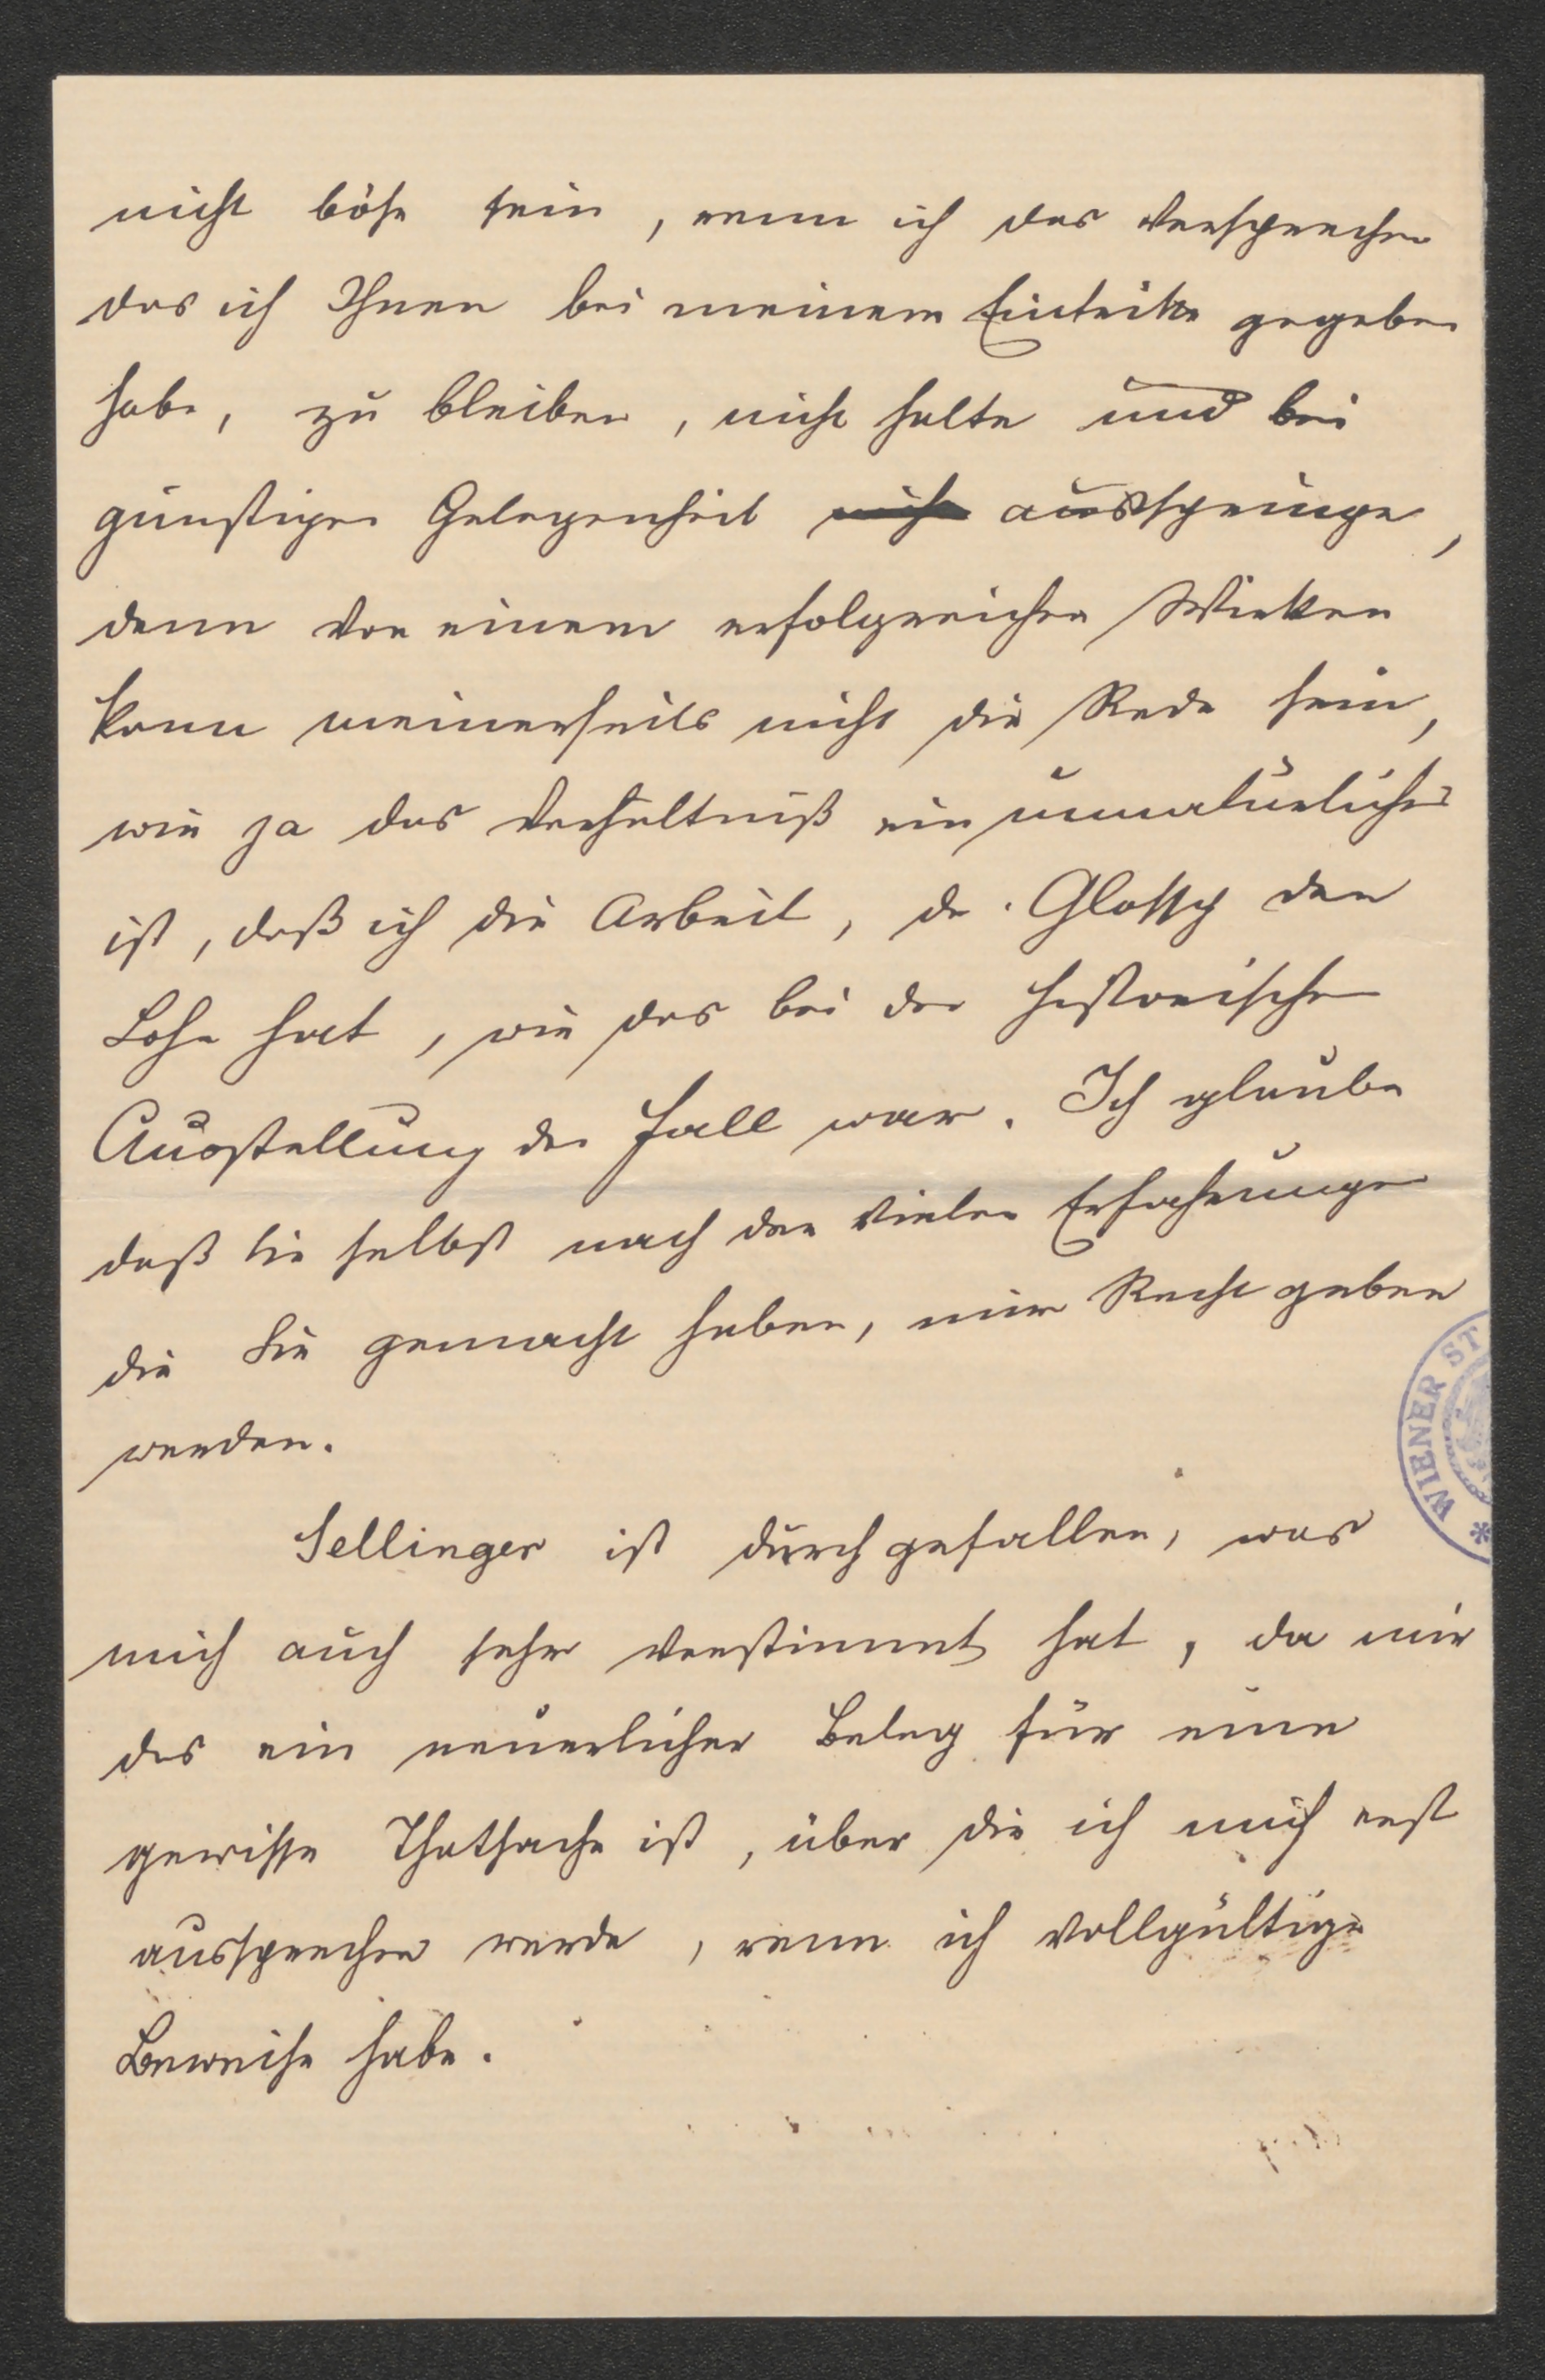 nicht böse sein, wenn ich das Versprechen
das ich Ihnen bei meinem Eintritte gegeben
habe, zu bleiben, nicht halte und bei
günstiger Gelegenheit nicht ausspringe,
denn von einem erfolgreichen Wirken
kann meinerseits nicht die Rede sein,
wie ja das Verhältniß ein unnatürliches
ist, daß ich die Arbeit, Dr. Glossy den
Lohn hat, wie das bei der historischen
Ausstellung der Fall war. Ich glaube
daß Sie selbst nach den vielen Erfahrungen
die Sie gemacht haben, mir Recht geben
werden.
Sellinger ist durchgefallen, was
mich auch sehr verstimmt hat, da mir
das ein neuerlicher Beleg für eine
gewisse Thatsache ist, über die ich mich erst
aussprechen werde, wenn ich vollgültige
Beweise habe.
* WIENER ST